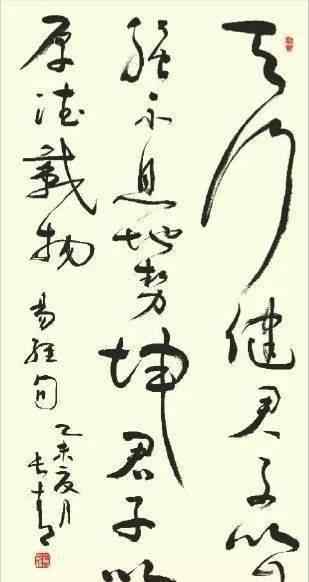 天行健君子以自
强不息地势坤君子以
厚德載物
易经句
乙未夏月